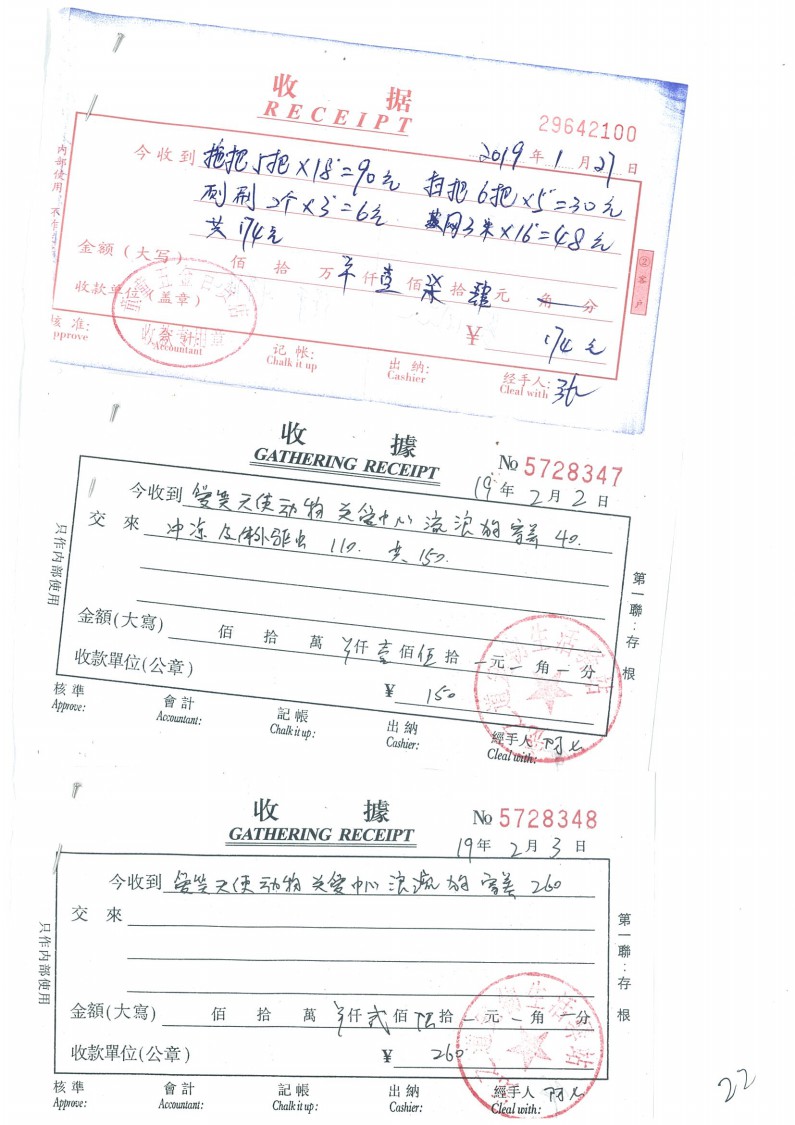 收 据
RECEIPT
29642100
2019 年 1 月 27 日
今收到 拖把5把×18=90元 扫把6把×5=30元
刷 2个×3=6元 网3米×16=48元
共174元
金额(大写) 佰 拾 万 仟 壹 佰 柒 拾 肆 元 角 分
收款单位(盖章)
¥ 174元
核 准: Approve
会 计: Accountant
记 帐: Chalk it up
出 纳: Cashier
经手人: Cleal with
内部使用
②客户
收 據
GATHERING RECEIPT
No 5728347
19年 2月 2日
今收到 爱笑天使动物关爱中心流浪狗寄养 40.
交 來 冲凉及体外驱虫 110. 共150.
金額(大寫) 佰 拾 萬 仟 壹 佰 伍 拾 元 角 分
收款單位(公章)
¥ 150
核準 Approve:
會計 Accountant:
記帳 Chalk it up:
出納 Cashier:
經手人 Cleal with:
只作内部使用
第一聯:存根
收 據
GATHERING RECEIPT
No 5728348
19年 2月 3日
今收到 爱笑天使动物关爱中心浪流狗寄养 260
交 來
金額(大寫) 佰 拾 萬 仟 贰 佰 陆 拾 元 角 分
收款單位(公章)
¥ 260
核準 Approve:
會計 Accountant:
記帳 Chalk it up:
出納 Cashier:
經手人 Cleal with:
只作内部使用
第一聯:存根
22